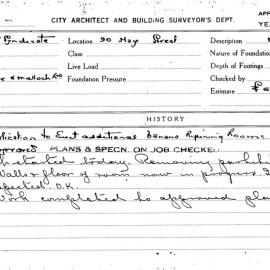 CITY ARCHITECT AND BUILDING SURVEYOR'S DEPT.
APP
YEA
Syndicate Location 90 Hay Street Description
Class Nature of Foundation
Live Load Depth of Footings
Foundation Pressure Checked by
Estimate £
HISTORY
lication to Erect additional Banana Ripening Rooms
approved PLANS & SPECN. ON JOB CHECKED
started today. Removing
Walls & floor of room now in progress
spected O.K.
Work completed to approved pla